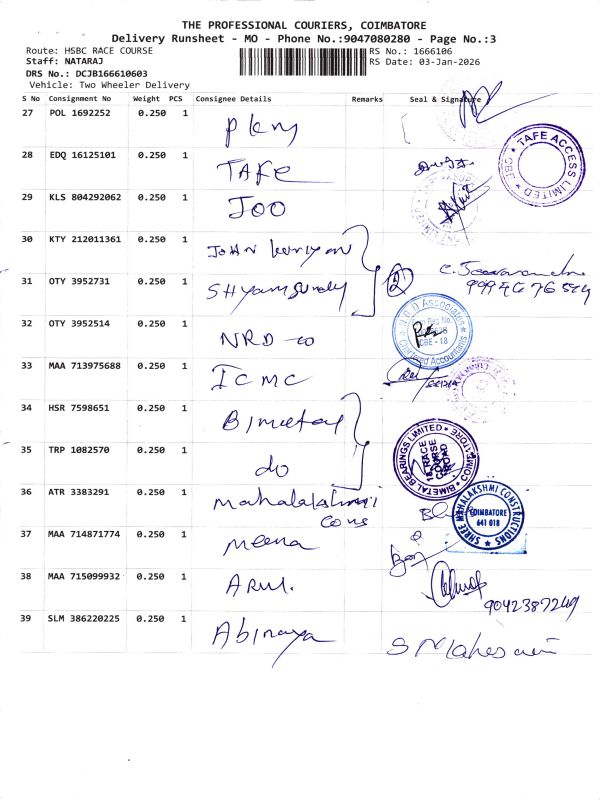 THE PROFESSIONAL COURIERS, COIMBATORE
Delivery Runsheet - MO - Phone No.:9047080280 - Page No.:3
Route: HSBC RACE COURSE
RS No.: 1666106
Staff: NATARAJ
RS Date: 03-Jan-2026
DRS No.: DCJB166610603
Vehicle: Two Wheeler Delivery
S No Consignment No Weight PCS Consignee Details Remarks Seal & Signature
27 POL 1692252 0.250 1
28 EDQ 16125101 0.250 1 TAFE
TAFE ACCESS LIMITED CBE
29 KLS 804292062 0.250 1 JOO
30 KTY 212011361 0.250 1 JOHN
31 OTY 3952731 0.250 1
2
32 OTY 3952514 0.250 1 NRD
N.R.D Associates
CBE - 18
Chartered Accountants
33 MAA 713975688 0.250 1 ICMC
34 HSR 7598651 0.250 1 Bimetal
35 TRP 1082570 0.250 1 do
BIMETAL BEARINGS LIMITED
18, RACE COURSE ROAD
36 ATR 3383291 0.250 1 Mahalakshmi
cons
SHREE MAHALAKSHMI CONSTRUCTIONS
COIMBATORE
641 018
37 MAA 714871774 0.250 1 Meena
38 MAA 715099932 0.250 1 ARUL.
9042387249
39 SLM 386220225 0.250 1 Abinaya